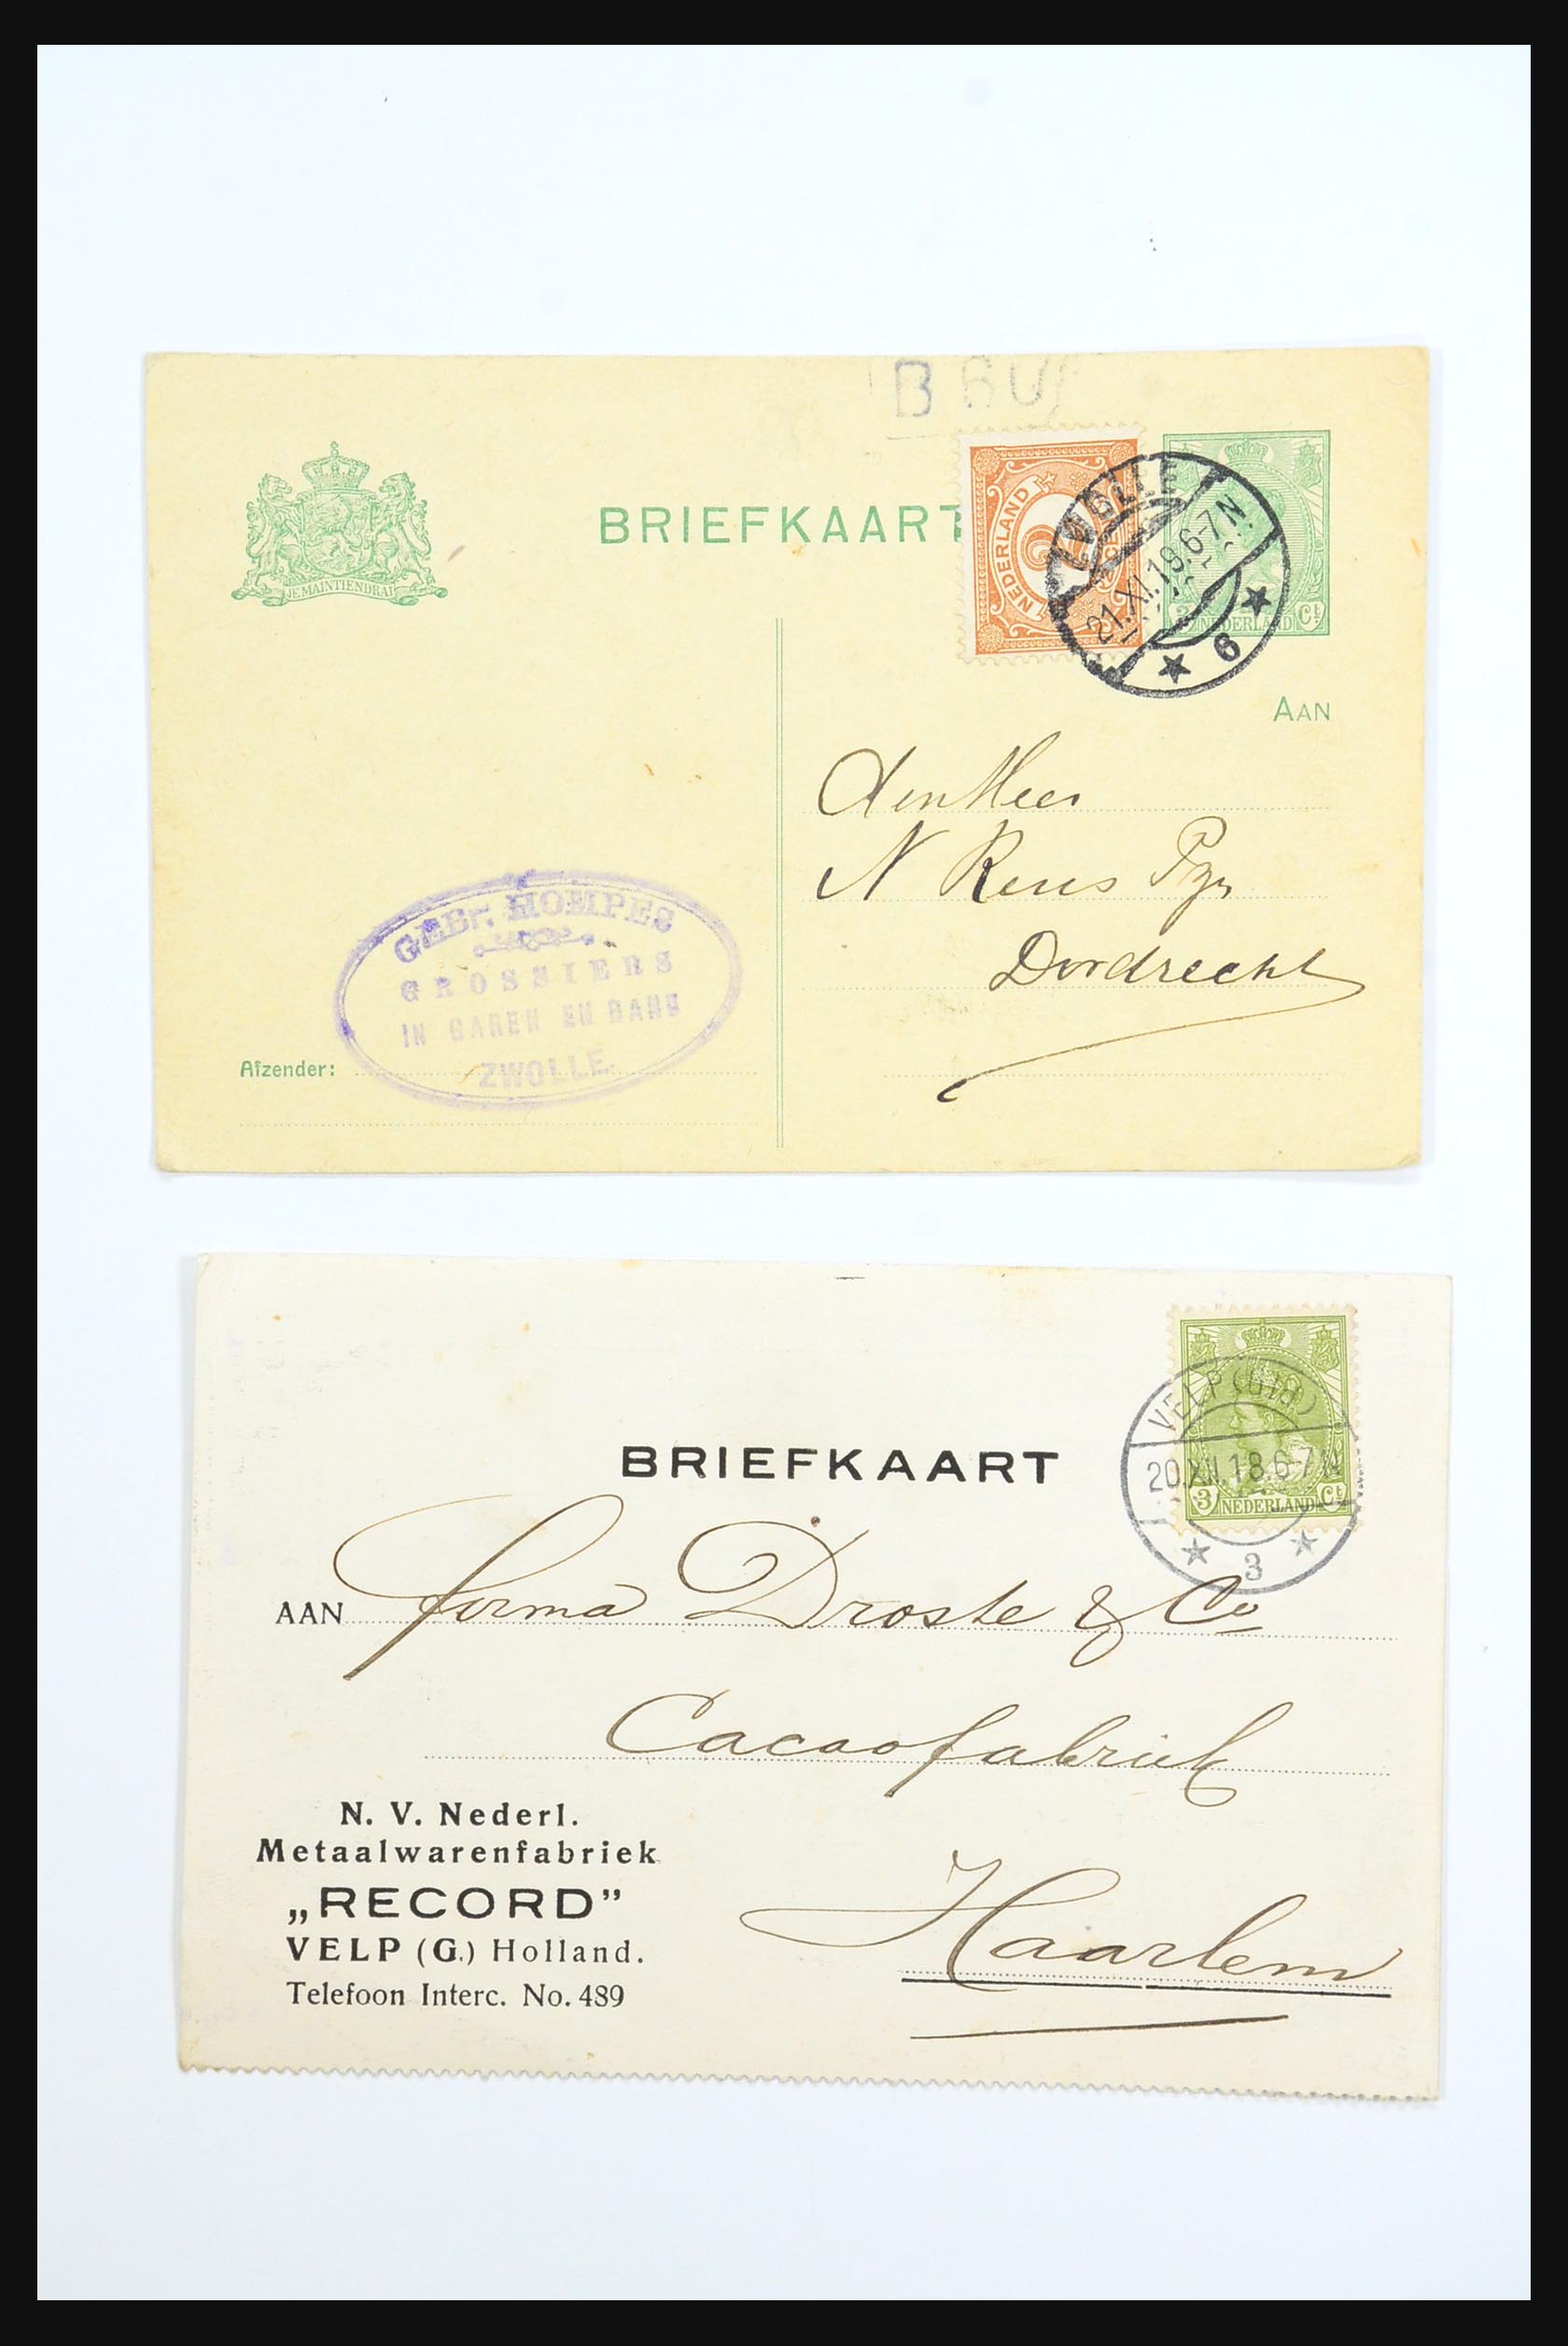 BRIEFKAART
JE MAINTIENDRAI
NEDERLAND
ZWOLLE
21.XI.19.6-7N
6
3 NEDERLAND Ct
AAN
den Heer
N
Dordrecht
GEBr. HOMPES
GROSSIERS
IN GAREN EN BAND
ZWOLLE
Afzender:
NEDERLAND
3 Ct
VELP (Gld)
20.XII.18.6-7N
3
BRIEFKAART
AAN firma Droste & Co
Cacaofabriek
N. V. Nederl.
Metaalwarenfabriek
„RECORD”
VELP (G.) Holland.
Telefoon Interc. No. 489
Haarlem